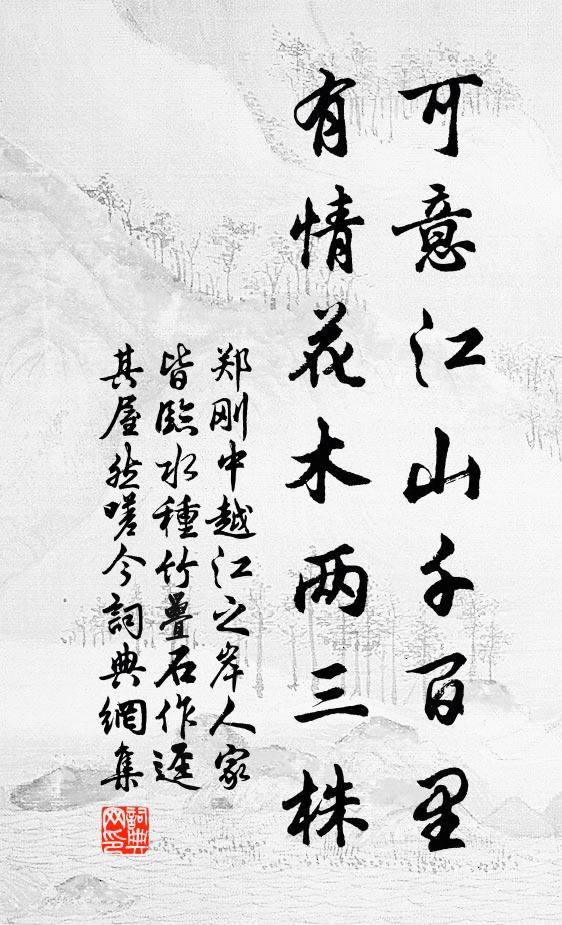 可意江山千百里
有情花木两三株
郑刚中越江之岸人家
皆臨水種竹疊石作逕
其屋然嗟今詞典網集
詞典网印